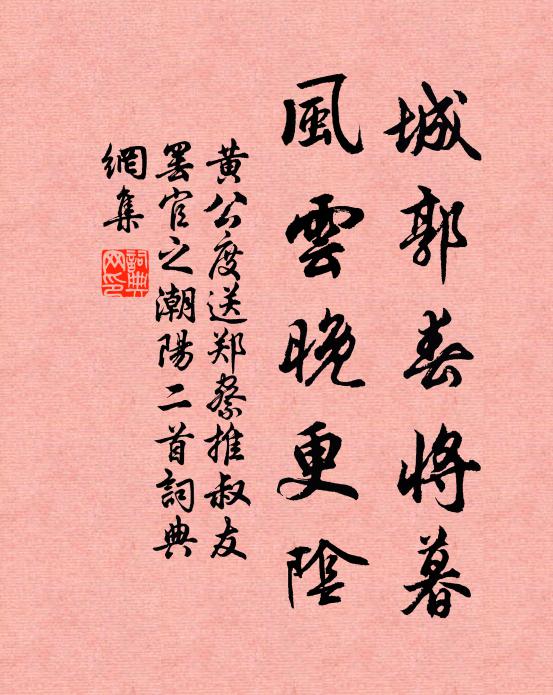 城郭春將暮
風雲晚更陰
黄公度送郑察推叔友
罢官之潮陽二首詞典
網集
詞典
网印